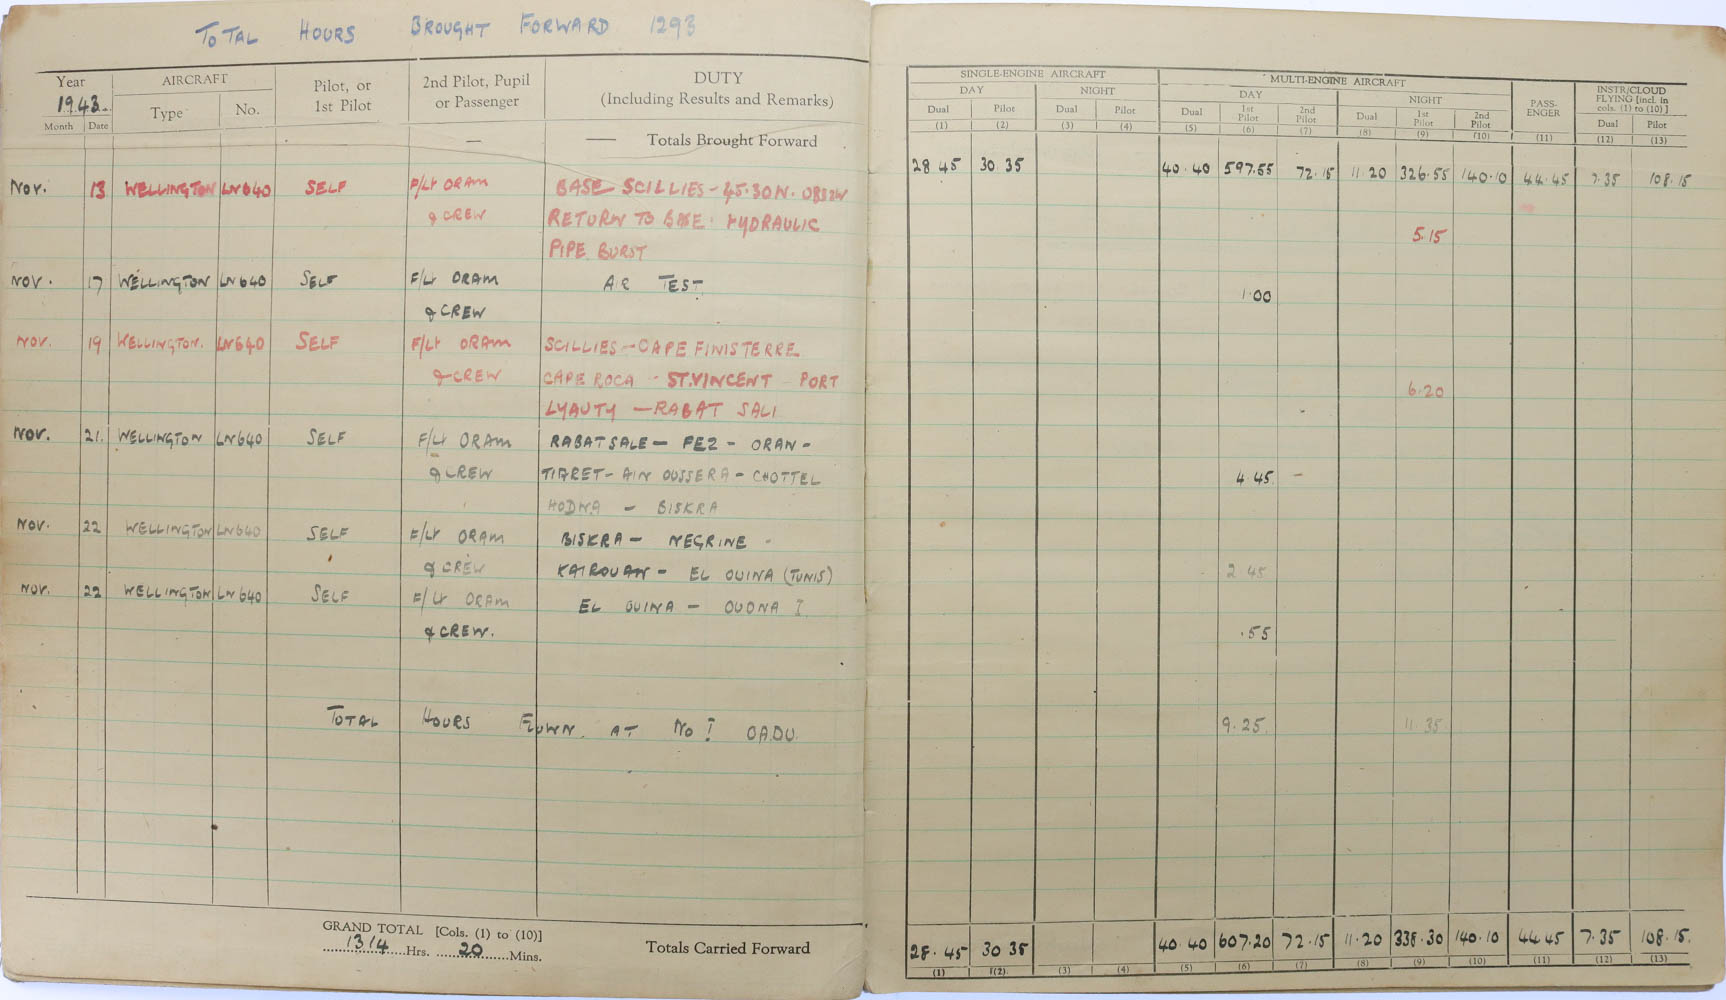 TOTAL HOURS BROUGHT FORWARD 1293
Year 1943
AIRCRAFT
Type No.
Month Date
Pilot, or 1st Pilot
2nd Pilot, Pupil or Passenger
DUTY
(Including Results and Remarks)
— — Totals Brought Forward
Nov. 13 WELLINGTON LN640 SELF F/Lt ORAM BASE SCILLIES - 45.30N.
& CREW RETURN TO BASE. HYDRAULIC
PIPE BURST
NOV. 17 WELLINGTON LN640 SELF F/Lt ORAM AIR TEST
& CREW
NOV. 19 WELLINGTON. LN640 SELF F/Lt ORAM SCILLIES - CAPE FINISTERRE
& CREW CAPE ROCA - ST. VINCENT - PORT
LYAUTY — RABAT SALI
NOV. 21. WELLINGTON LN640 SELF F/Lt ORAM RABAT SALE — FEZ - ORAN -
& CREW TIARET - AIN OUSSERA - CHOTTEL
HODNA - BISKRA
NOV. 22 WELLINGTON LN640 SELF F/Lt ORAM BISKRA - NEGRINE -
& CREW KAIROUAN - EL OUINA (TUNIS)
NOV. 22 WELLINGTON LN640 SELF F/Lt ORAM EL OUINA - OUDNA I
& CREW.
TOTAL HOURS FLOWN. AT No I OADU.
GRAND TOTAL [Cols. (1) to (10)]
1314 Hrs. 20 Mins.
Totals Carried Forward
SINGLE-ENGINE AIRCRAFT MULTI-ENGINE AIRCRAFT
DAY NIGHT DAY NIGHT
PASS-ENGER
INSTR/CLOUD FLYING [incl. in cols. (1) to (10)]
Dual Pilot Dual Pilot Dual 1st Pilot 2nd Pilot Dual 1st Pilot 2nd Pilot Dual Pilot
(1) (2) (3) (4) (5) (6) (7) (8) (9) (10) (11) (12) (13)
28 45 30 35 40.40 597.55 72.15 11 20 326.55 140.10 44.45 7.35 108.15
5.15
1.00
6.20
4 45
2 45
.55
9.25 11 35
28.45 30 35 40.40 607.20 72.15 11.20 338.30 140.10 44 45 7.35 108.15.
(1) (2) (3) (4) (5) (6) (7) (8) (9) (10) (11) (12) (13)